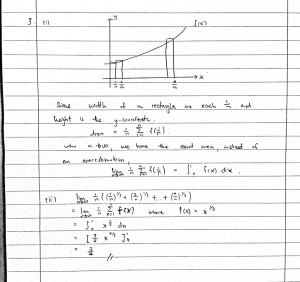 3. (i)
y
f(x)
x
Since width of n rectangles are each 1/n and
height is the y-coordinate.
Area = 1/n Σ f(r/n).
when n→∞, we have the exact area, instead of
an approximation,
lim n→∞ 1/n Σ f(r/n) = ∫ f(x) dx.
(ii) lim n→∞ 1/n ((1/n)^1/3 + (2/n)^1/3 + ... + (n/n)^1/3)
= lim n→∞ 1/n Σ f(x) where f(x) = x^1/3
= ∫ x^1/3 dx
= [3/4 x^4/3]
= 3/4